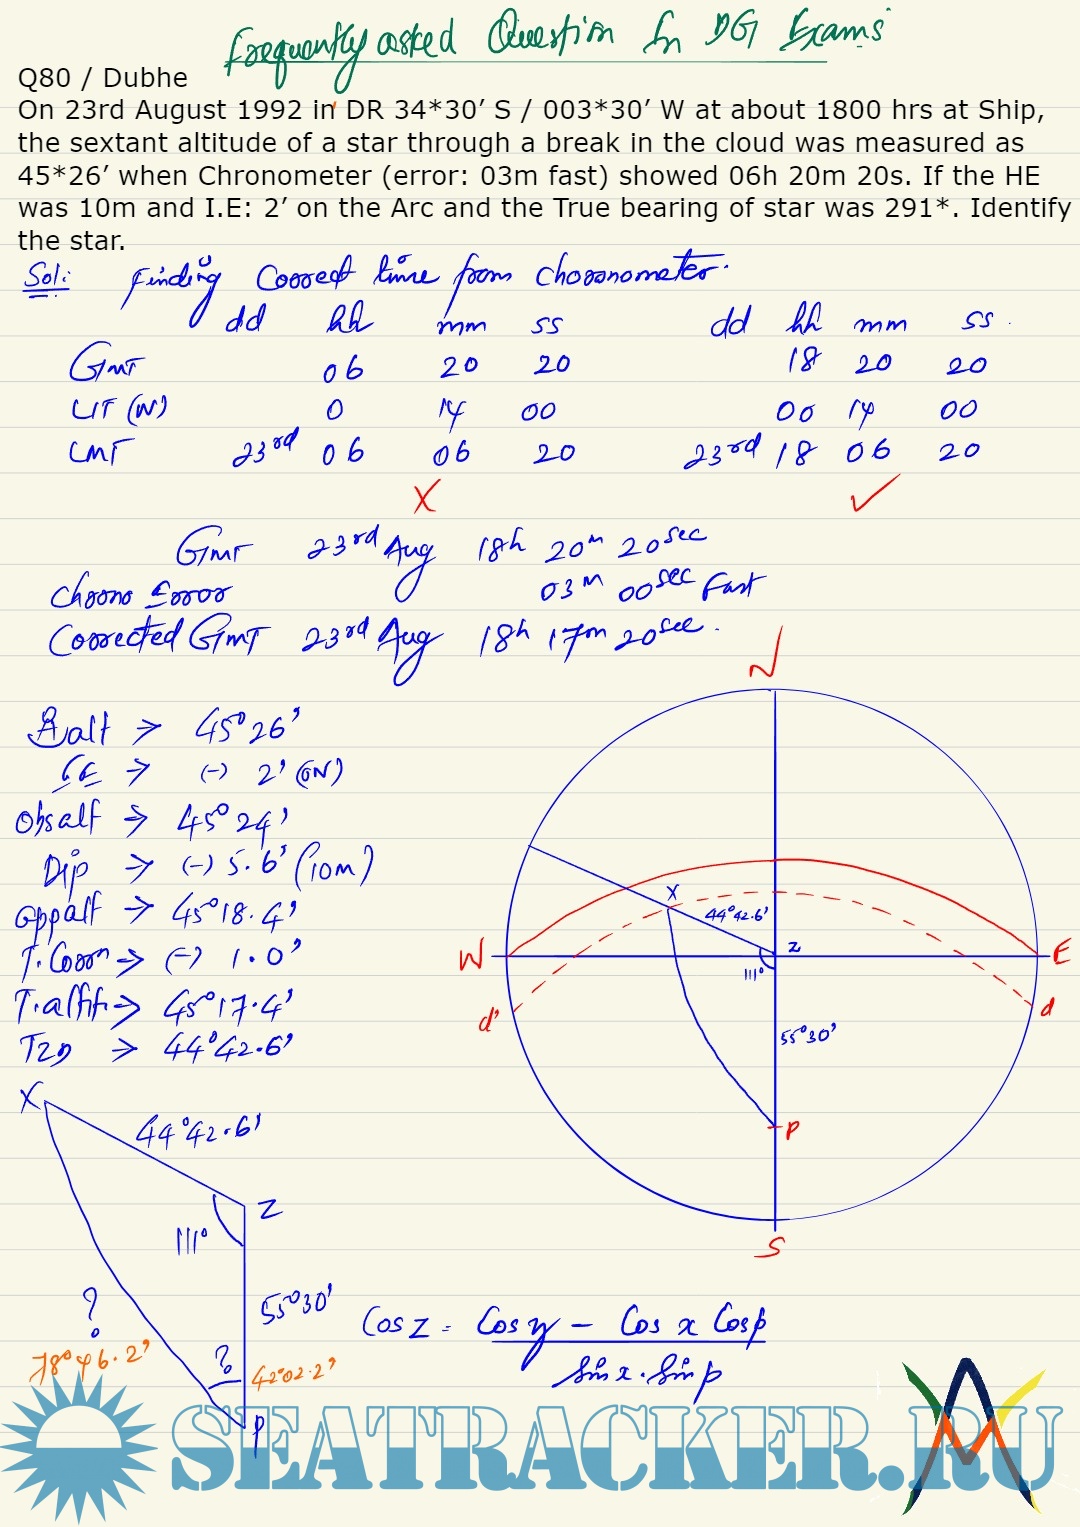 Frequently asked Question In DG Exams
Q80 / Dubhe
On 23rd August 1992 in DR 34*30’ S / 003*30’ W at about 1800 hrs at Ship,
the sextant altitude of a star through a break in the cloud was measured as
45*26’ when Chronometer (error: 03m fast) showed 06h 20m 20s. If the HE
was 10m and I.E: 2’ on the Arc and the True bearing of star was 291*. Identify
the star.
Sol: Finding Correct time from Choronometer.
dd hh mm ss dd hh mm ss.
GMT 06 20 20 18 20 20
LIT (W) 0 14 00 00 14 00
LMT 23rd 06 06 20 23rd 18 06 20
X ✓
GMT 23rd Aug 18h 20m 20sec
Chrono Error 03m 00sec Fast
Corrected GMT 23rd Aug 18h 17m 20sec.
N
alt → 45°26'
IE → (-) 2' (ON)
Obsalt → 45°24'
Dip → (-) 5.6' (10m)
appalt → 45°18.4'
T.Corrn → (-) 1.0'
T.alt → 45°17.4'
TZD → 44°42.6'
X 44°42.6' Z
W E
111°
d' d
55°30'
P
S
X
44°42.6'
Z
111°
55°30'
?
78°46.2'
? 42°02.2'
P
Cos Z = Cos y - Cos x Cos p
Sin x . Sin p
SEATRACKER.RU